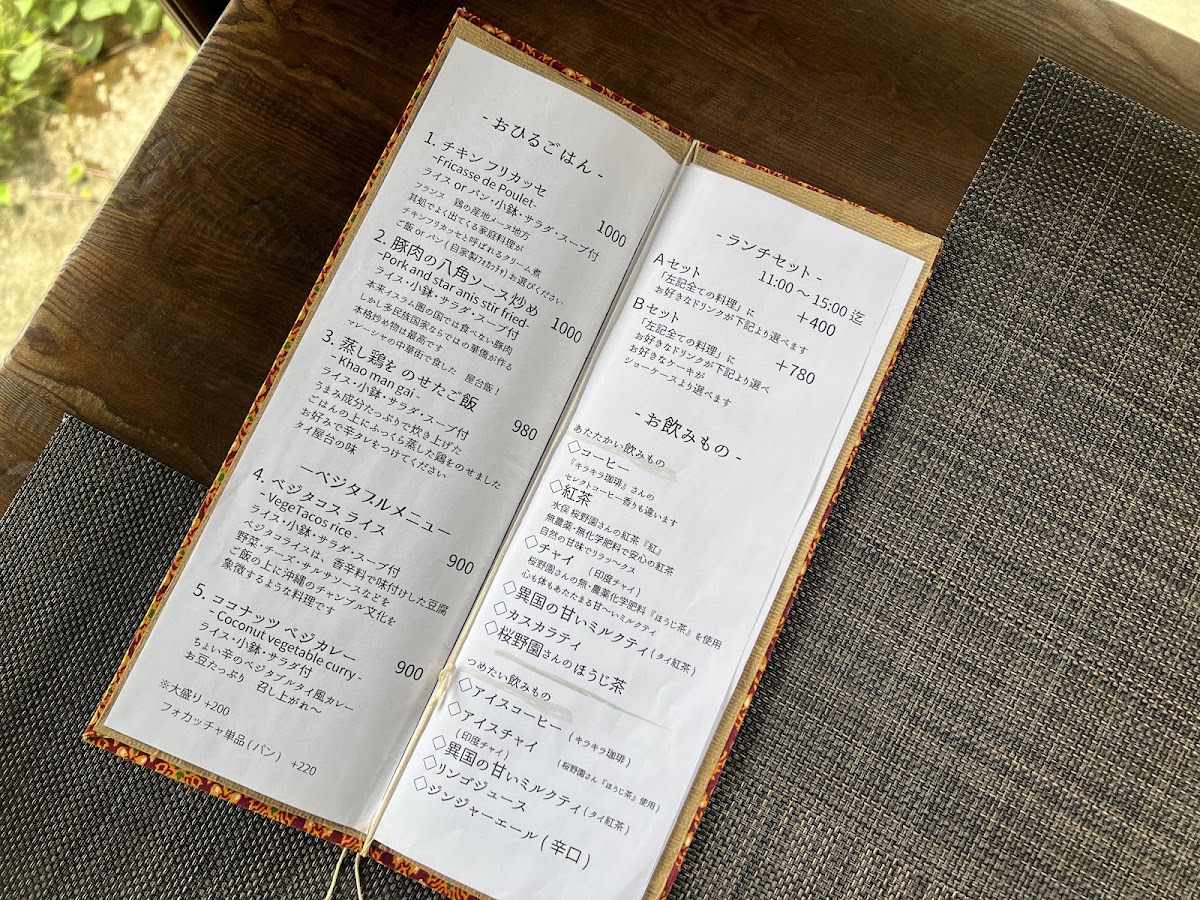 - おひるごはん -
1. チキン フリカッセ
-Fricasse de Poulet-
ライス or パン・小鉢・サラダ・スープ付
1000
フランス　鶏の産地メーヌ地方
其処でよく出てくる家庭料理が
チキンフリカッセと呼ばれるクリーム煮
ご飯 or パン ( 自家製ﾌｫｶｯﾁｬ) お選びください
2. 豚肉の八角ソース炒め
-Pork and star anis stir fried-
ライス・小鉢・サラダ・スープ付
1000
本来イスラム圏の国では食べない豚肉
しかし多民族国家ならではの華僑が作る
本格炒め物は最高です
マレーシヤの中華街で食した　屋台飯！
3. 蒸し鶏を のせたご飯
- Khao man gai -
ライス・小鉢・サラダ・スープ付
980
うまみ成分たっぷりで炊き上げた
ごはんの上にふっくら蒸した鶏をのせました
お好みで辛タレをつけてください
タイ屋台の味
ーベジタブルメニュー
4. ベジタコス ライス
- VegeTacos rice -
ライス・小鉢・サラダ・スープ付
900
ベジタコライスは、香辛料で味付けした豆腐
野菜・チーズ・サルサソースなどを
ご飯の上に沖縄のチャンプル文化を
象徴するような料理です
5. ココナッツ ベジカレー
- Coconut vegetable curry -
ライス・小鉢・サラダ付
900
ちょい辛のベジタブルタイ風カレー
お豆たっぷり　召し上がれ～
※大盛り +200
フォカッチャ単品 ( パン )　+220
- ランチセット -
11:00 ～ 15:00 迄
A セット
+400
「左記全ての料理」に
お好きなドリンクが下記より選べます
B セット
「左記全ての料理」に
お好きなドリンクが下記より選べ
+780
お好きなケーキが
ショーケースより選べます
- お飲みもの -
あたたかい飲みもの
◇コーヒー
『キラキラ珈琲』さんの
セレクトコーヒー香りも違います
◇紅茶
水俣 桜野園さんの紅茶『紅』
無農薬・無化学肥料で安心の紅茶
自然の甘味でリラッ～クス
◇チャイ　( 印度チャイ )
桜野園さんの無・農薬化学肥料『ほうじ茶』を使用
心も体もあたたまる甘～いミルクティ
◇異国の甘いミルクティ ( タイ紅茶 )
◇カスカラティ
◇桜野園さんの ほうじ茶
つめたい飲みもの
◇アイスコーヒー　( キラキラ珈琲 )
◇アイスチャイ
( 印度チャイ )　( 桜野園さん『ほうじ茶』使用 )
◇異国の甘いミルクティ ( タイ紅茶 )
◇リンゴジュース
◇ジンジャーエール ( 辛口 )